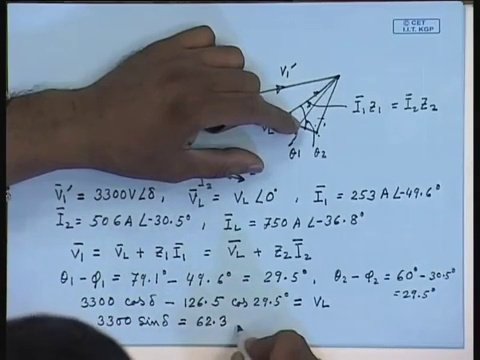 © CET
I.I.T. KGP
V₁′
Ī₁Z₁ = Ī₂Z₂
θ₁ θ₂
V̄₁′ = 3300V∠δ, V̄_L = V_L∠0°, Ī₁ = 253 A∠-49.6°
Ī₂ = 506 A∠-30.5°, Ī_L = 750 A∠-36.8°
V̄₁ = V̄_L + Z₁Ī₁ = V̄_L + Z₂Ī₂
θ₁ - φ₁ = 79.1° - 49.6° = 29.5°, θ₂ - φ₂ = 60° - 30.5°
= 29.5°
3300 cosδ - 126.5 cos 29.5° = V_L
3300 sinδ = 62.3